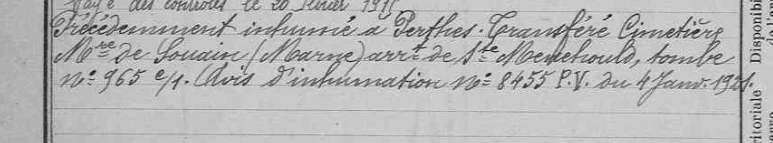 Rayé des contrôles le 20 
Précédemment inhumé à Perthes. Transféré Cimetière
Mre de Souain (Marne) arrt de Ste Menehould, tombe
No 965 e/1. Avis d'inhumation No 8455 P.V. du 4 Janv. 1921.
Disponibi
ritoriale